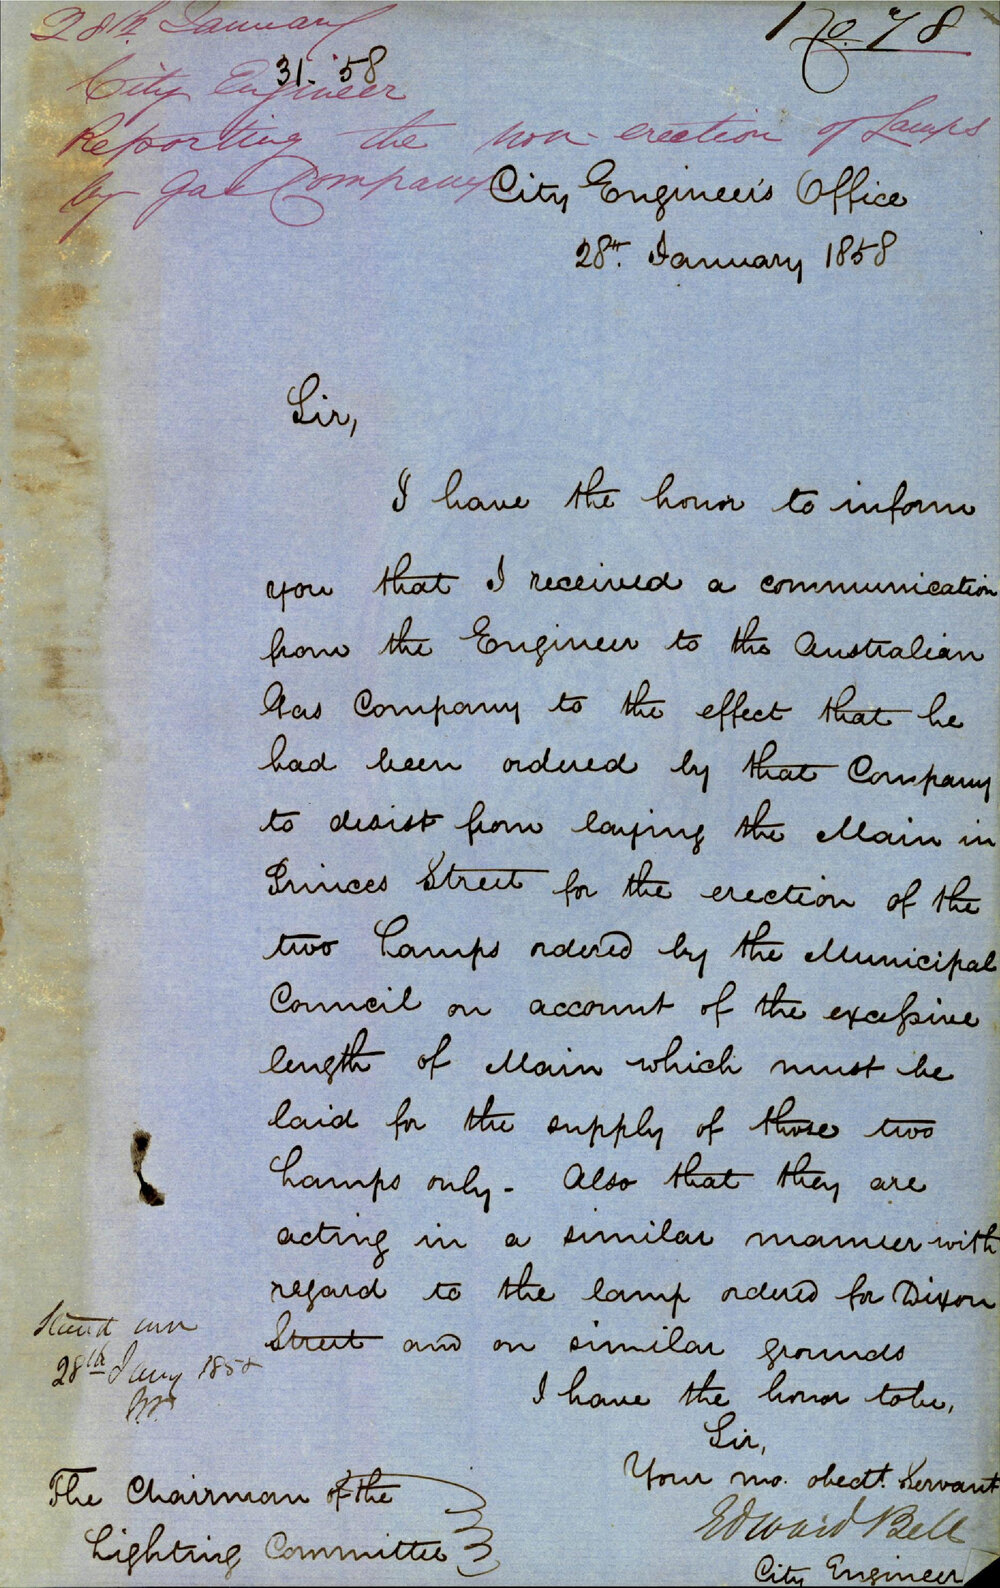 28th January
No. 78
31. '58
City Engineer
Reporting the non-erection of Lamps
by Gas Company
City Engineer's Office
28th. January 1858
Sir,
I have the honor to inform
you that I received a communication
from the Engineer to the Australian
Gas Company to the effect that he
had been ordered by that Company
to desist from laying the Main in
Princes Street for the erection of the
two Lamps ordered by the Municipal
Council on account of the excessive
length of Main which must be
laid for the supply of those two
Lamps only - Also that they are
acting in a similar manner with
regard to the lamp ordered for Dixon
Street and on similar grounds
I have the honor to be,
Sir,
Your mo. obedt. Servant
Edward Bell
City Engineer
28th Jany 1858
The Chairman of the
Lighting Committee